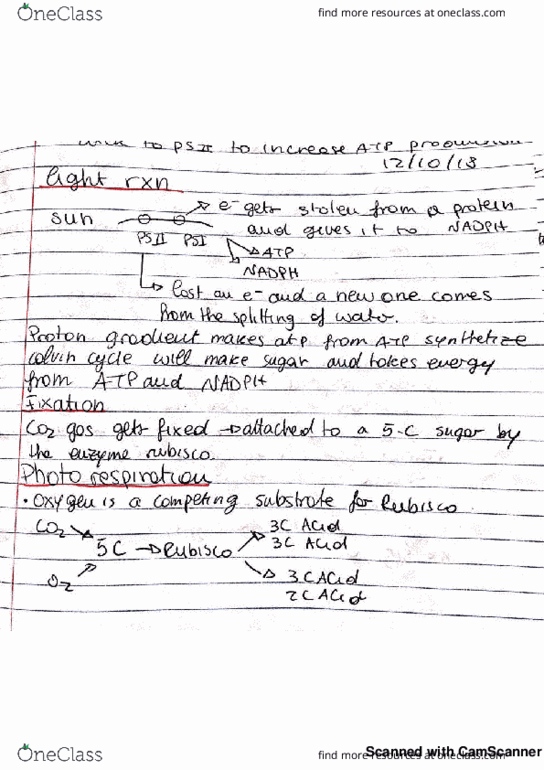 OneClass
find more resources at oneclass.com
to PSII to increase ATP
12/10/18
light rxn
e- gets stolen from a protein
sun
and gives it to NADPH
PSII PSI
ATP
NADPH
lost an e- and a new one comes
from the splitting of water.
Proton gradient makes atp from ATP synthetize
calvin cycle will make sugar and takes energy
from ATP and NADPH
Fixation
CO2 gas gets fixed → attached to a 5-C sugar by
the enzyme rubisco.
Photo respiration
• Oxygen is a competing substrate for Rubisco
CO2
3C Acid
3C Acid
5C → Rubisco
O2
3C Acid
2C Acid
OneClass
find more resources at oneclass.com
Scanned with CamScanner